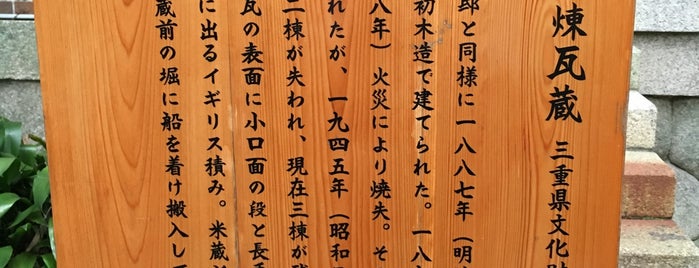 煉瓦蔵 三重県文化財
郎と同様に一八八七年（明
初木造で建てられた。一八
八年）火災により焼失。そ
れたが、一九四五年（昭和
二棟が失われ、現在三棟が
瓦の表面に小口面の段と長手
に出るイギリス積み。米蔵
蔵前の堀に船を着け搬入し